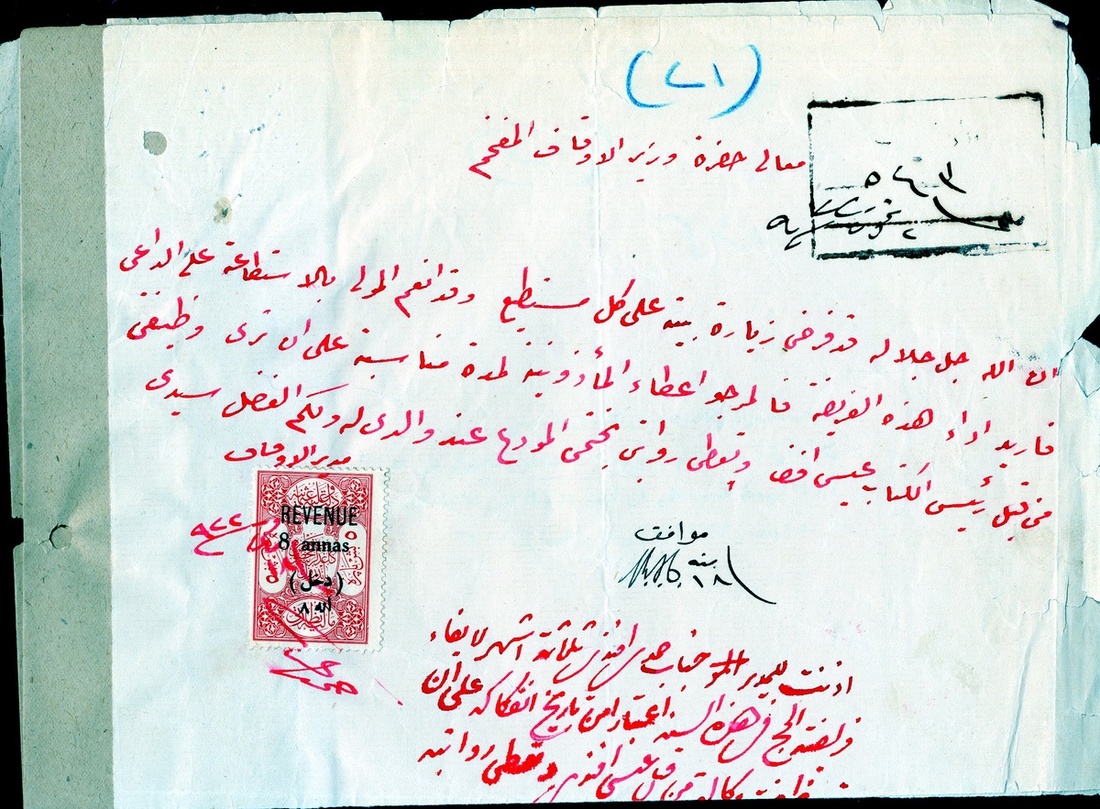 (٢١)
٥٤٠٣
معالي حضرة وزير الاوقاف المفخم
ان الله جل جلاله قد فرض زيارة بيته على كل مستطيع وقد انعم المولى بالاستطاعة على الداعي
فاريد اداء هذه الفريضة فالمرجو اعطاء المأذونية لمدة مناسبة على ان ترى وظيفتي
من قبل رئيس الكتاب عيسى افندي وتعطى رواتبي المودع عند والدي له ولكم الفضل سيدي
مدير الاوقاف
٩٢٢
REVENUE
8 annas
(دخل)
٨ انه
موافق
١٨ منه
اذنت للمدير افندي ثلاثة اشهر لايفاء
فريضة الحج في هذه السنة اعتبارا من تاريخ انفكاكه على ان
وكالة من قبل عيسى افندي وتعطى رواتبه